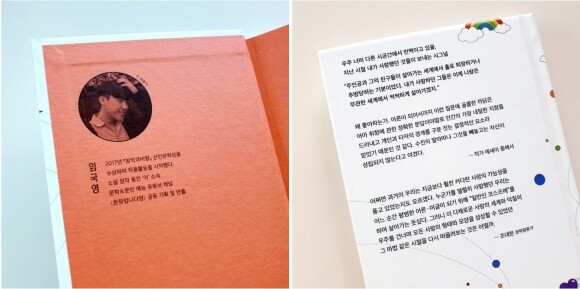 임국영
2017년 『창작과비평』 신인문학상을
수상하며 작품활동을 시작했다.
소설 창작 동인 '애' 소속.
문학&문인 예능 유튜브 채널
<문장입니다영> 공동 기획 및 연출.
우주 너머 다른 시공간에서 반짝이고 있을,
지난 시절 내가 사랑했던 것들이 보내는 시그널
"주인공과 그의 친구들이 살아가는 세계에서 홀로 퇴장하거나
추방당하는 기분이었다. 내가 사랑하던 그들은 이제 나랑은
무관한 세계에서 씩씩하게 살아가겠지."
왜 좋아하는가. 마흔이 되어서까지 이런 질문에 골몰한 까닭은
아마 취향에 관한 정확한 문답이야말로 인간의 가장 내밀한 지점을
드러내고 개인과 타자의 경계를 구분 짓는 결정적인 요소라
믿었기 때문인 것 같다. 수만의 할아마니 그것을 빼놓고는 자신이
성립되지 않는다고 여겼다.
— 작가 에세이 중에서
어쩌면 과거의 우리는 지금보다 훨씬 커다란 사랑의 가능성을
품고 있었는지도 모르겠다. 누군가를 열렬히 사랑했던 우리는
어느 순간 평범한 어른-머글이 되기 위해 "일반인 코스프레"를
하며 살아가는 듯싶다. 그러니 이 다채로운 사랑의 세계와 덕질의
우주를 건너며 모든 사랑의 형태와 모양을 상상할 수 있었던
그 마법 같은 시절을 다시 떠올려보는 것은 어떨까.
— 조대한 문학평론가